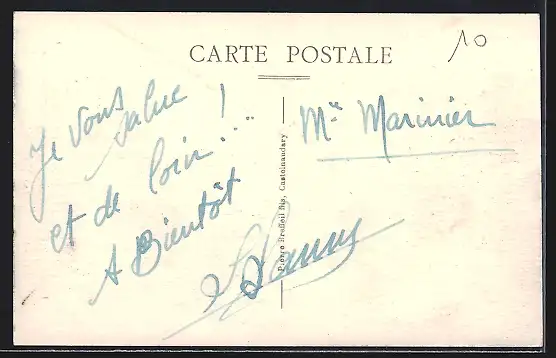 CARTE POSTALE
10
Je vous
salue !
et de loin...
A Bientôt
Mle Marinier
Pierre Breffeil fils, Castelnaudary